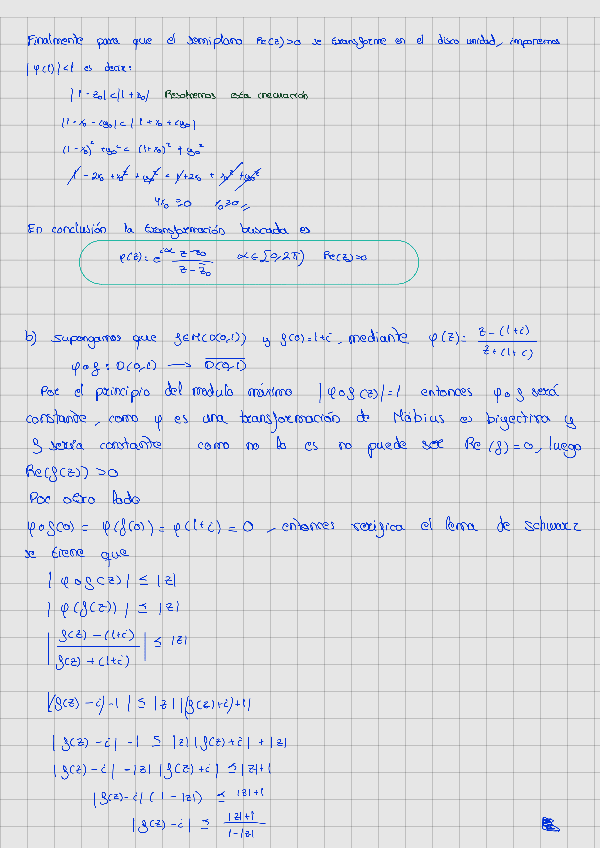 Finalmente para que el semiplano Re(z)>0 se transforme en el disco unidad, imponemos
|φ(1)|<1 es decir:
|1-z₀|<|1+z₀| Resolvemos esta inecuación
|1-x₀-iy₀|<|1+x₀+iy₀|
(1-x₀)²+y₀²<(1+x₀)²+y₀²
1-2x₀+x₀²+y₀²<1+2x₀+x₀²+y₀²
4x₀≥0 x₀≥0//
En conclusión la transformación buscada es
φ(z)= e^{iα} (z-z₀)/(z-z̄₀) α∈[0,2π) Re(z₀)>0
b) Supongamos que f∈H(D(0,1)) y f(0)=1+i, mediante φ(z)= (z-(1+i))/(z+(1+i))
φ∘f: D(0,1) → \overline{D(0,1)}
Por el principio del modulo máximo |φ∘f(z)|=1 entonces φ∘f será
constante, como φ es una transformación de Möbius es biyectiva y
f sería constante como no lo es no puede ser Re(f)=0, luego
Re(f(z))>0
Por otro lado
φ∘f(0) = φ(f(0)) = φ(1+i) = 0, entonces verifica el lema de Schwarz
se tiene que
|φ∘f(z)| ≤ |z|
|φ(f(z))| ≤ |z|
|(f(z)-(1+i))/(f(z)+(1+i))| ≤ |z|
|(f(z)-i)-1| ≤ |z||(f(z)+i)+1|
|f(z)-i|-1 ≤ |z||f(z)+i|+|z|
|f(z)-i|-|z||f(z)+i| ≤ |z|+1
|f(z)-i|(1-|z|) ≤ |z|+1
|f(z)-i| ≤ (|z|+1)/(1-|z|)